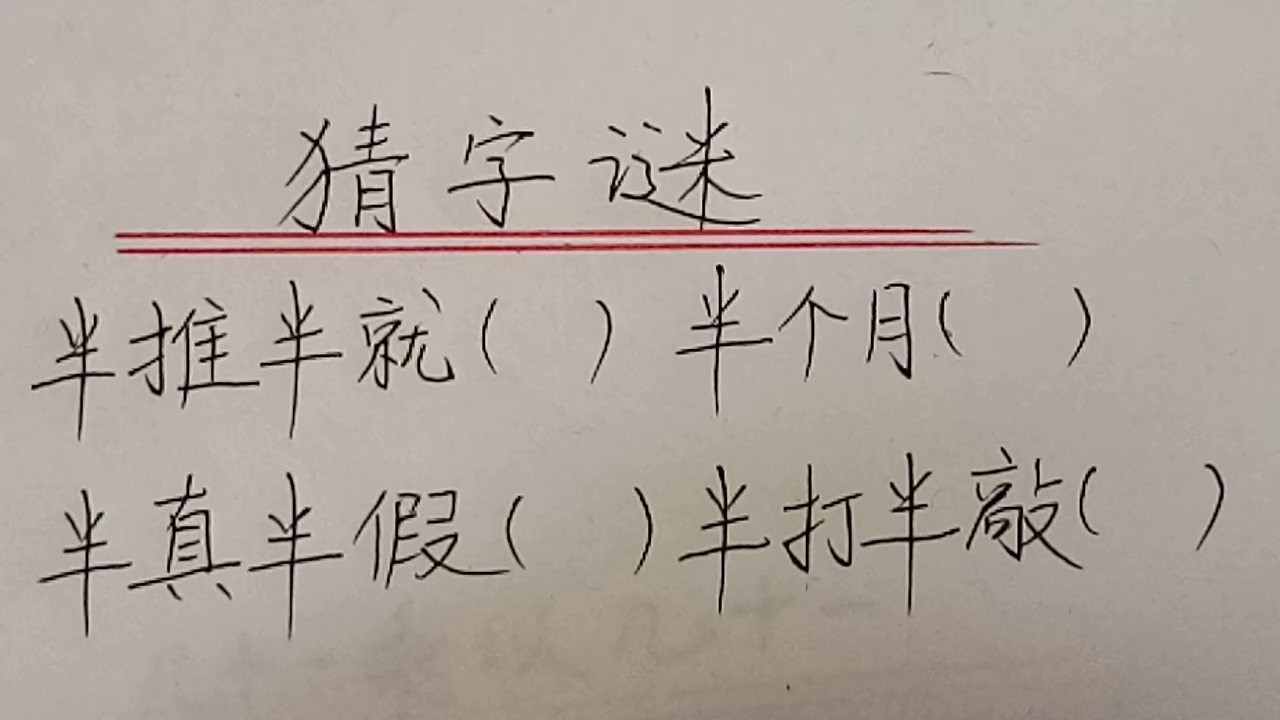 猜字谜
半推半就( ) 半个月( )
半真半假( ) 半打半敲( )